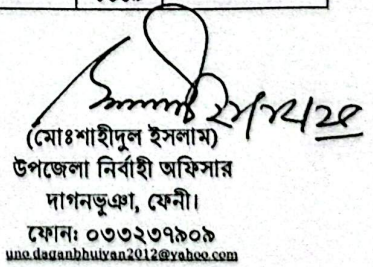 (মোঃশাহীদুল ইসলাম)
উপজেলা নির্বাহী অফিসার
দাগনভূঞা, ফেনী।
ফোন: ০৩৩২৩৭৯০৯
uno.daganbhuiyan2012@yahoo.com